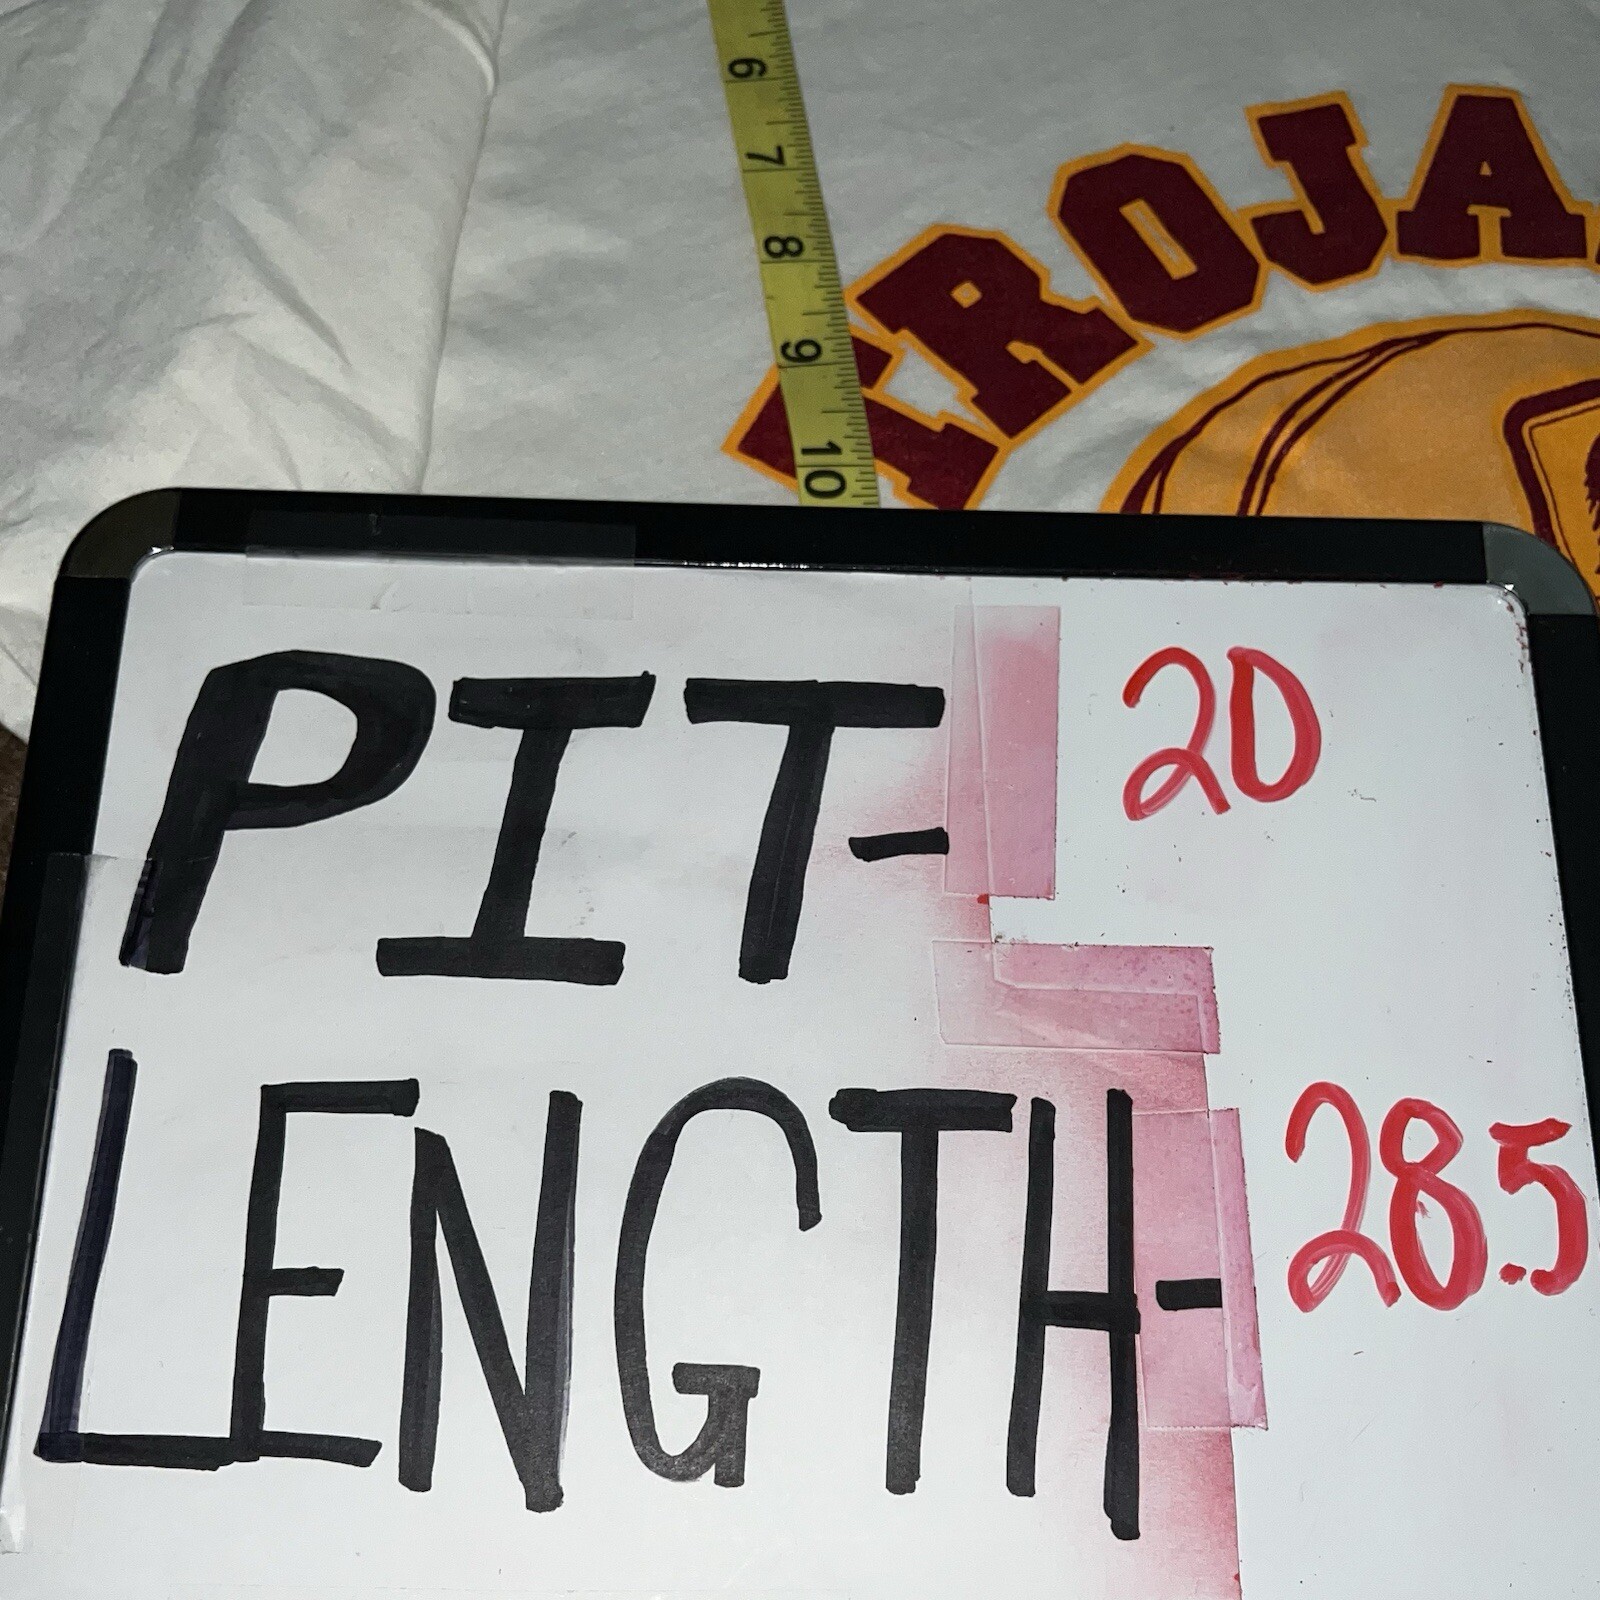 6
7
8
9
10
TROJA
PIT- 20
LENGTH- 28.5